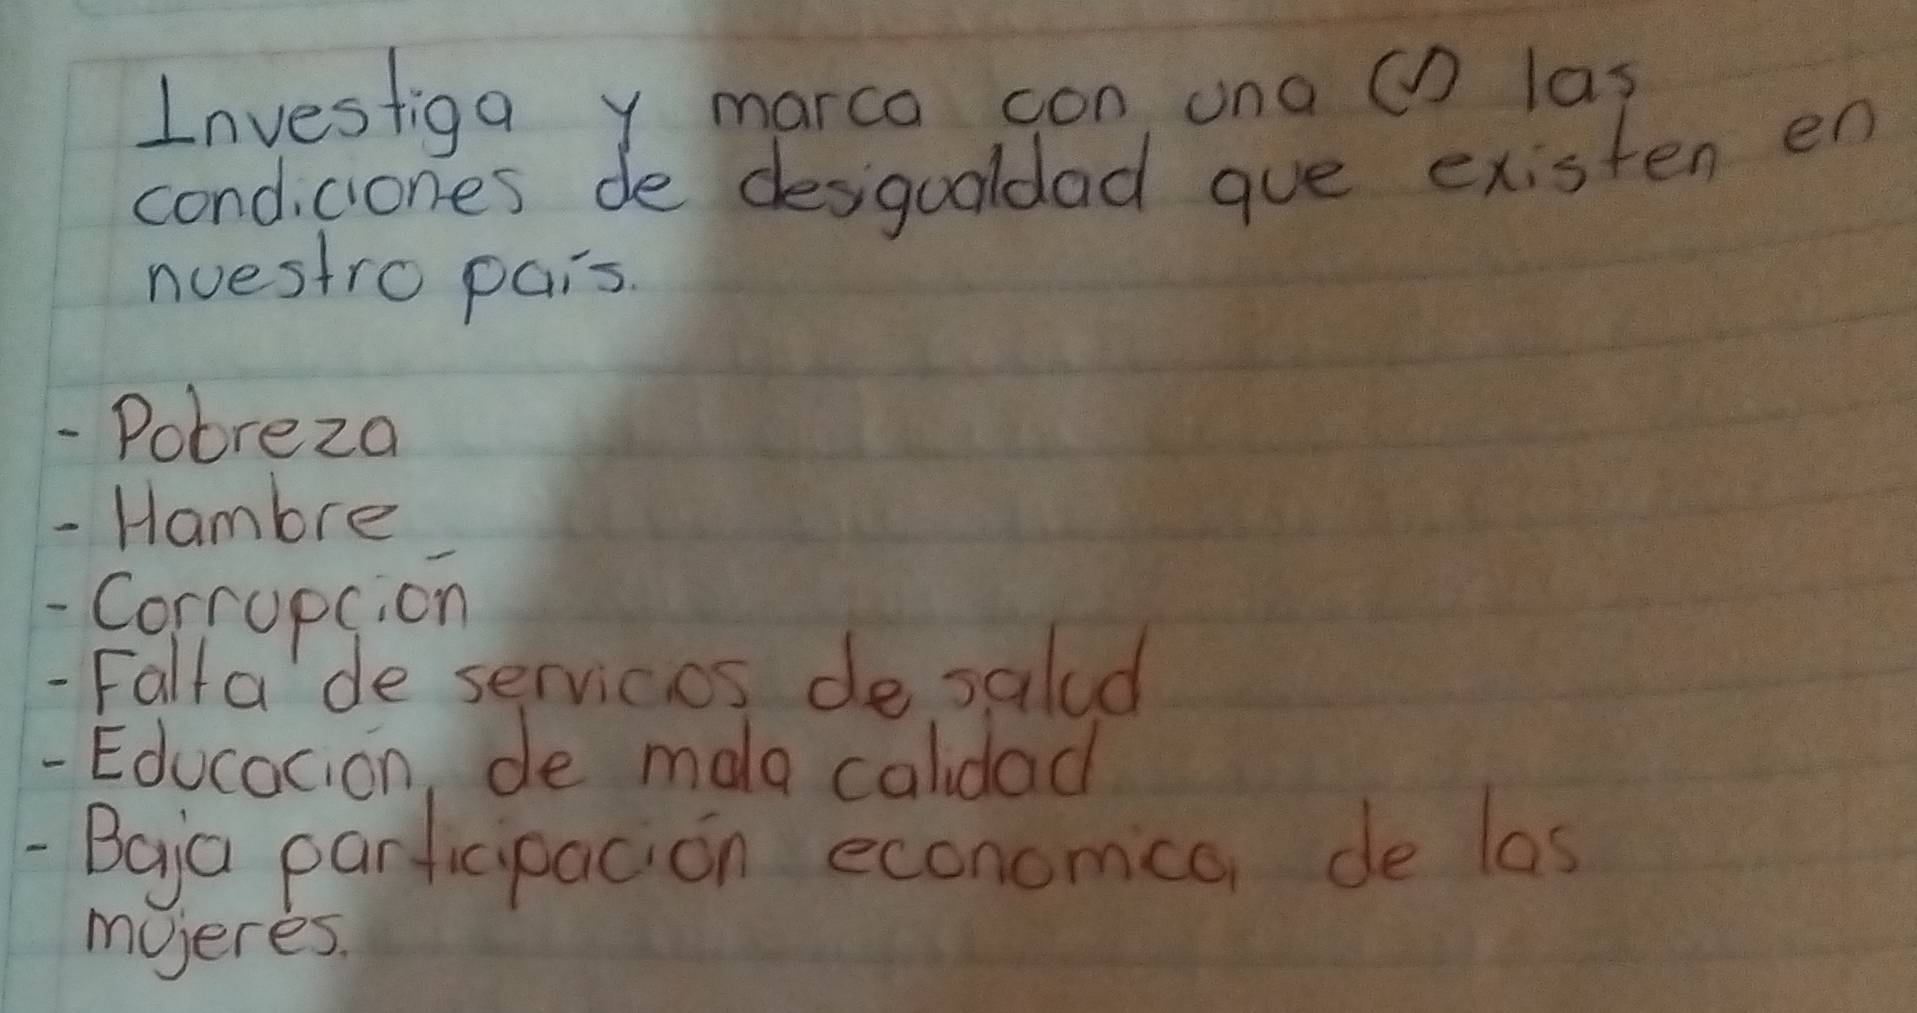 Investiga y marca con una (✓) las
condiciones de desigualdad que existen en
nuestro país.
- Pobreza
- Hambre
- Corrupción
- Falta de servicios de salud
- Educación de mala calidad
- Baja participación economica de las
mujeres.